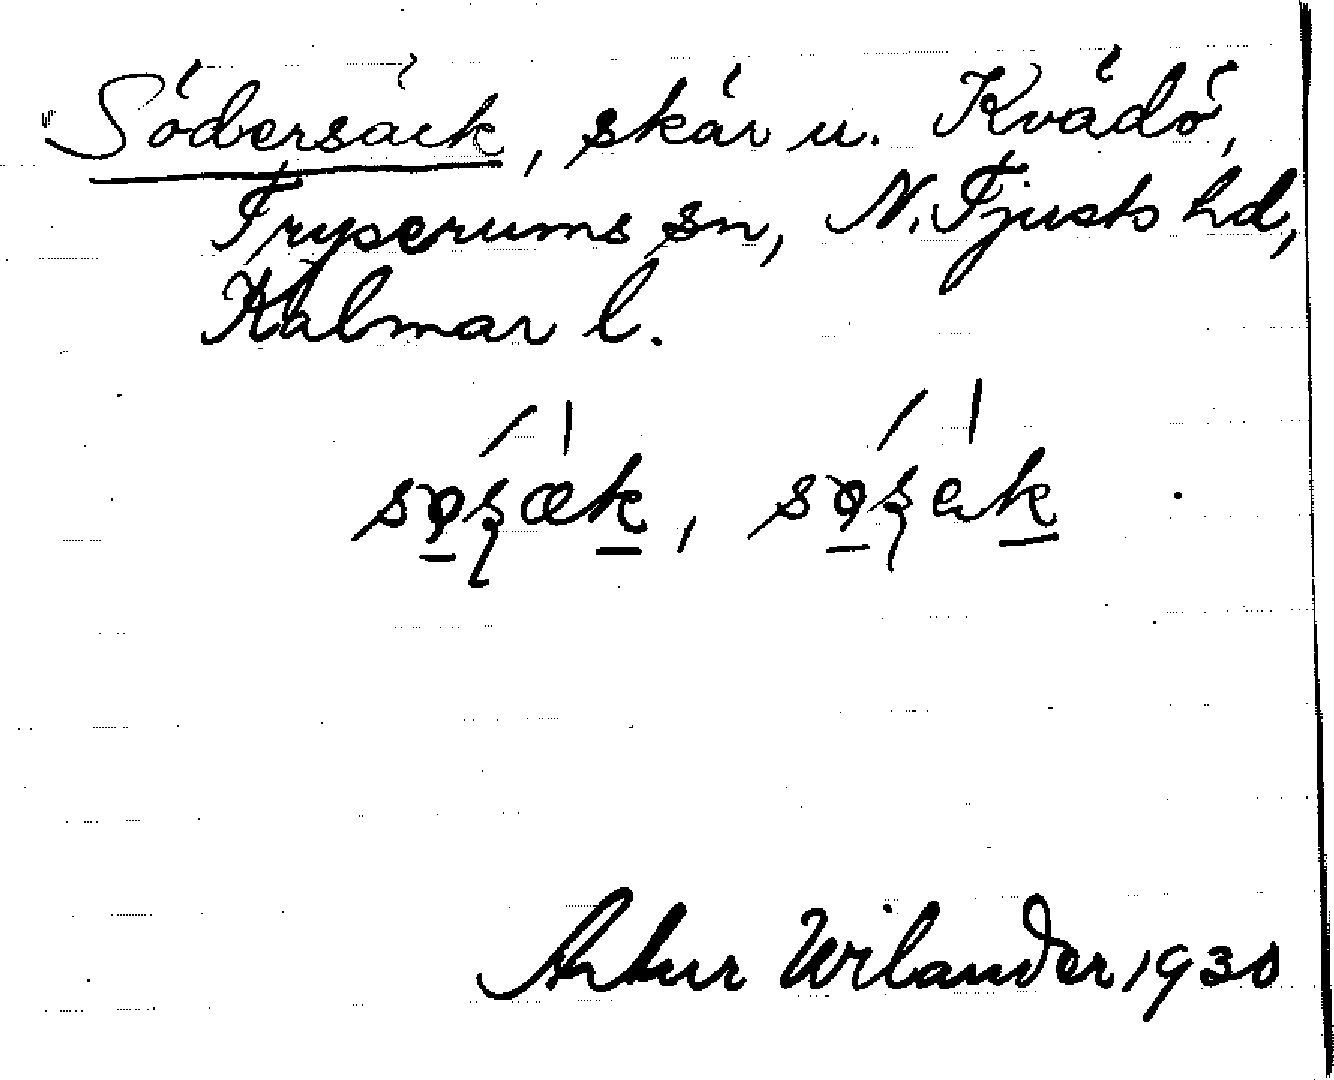 Södersäck, skär u. Kvädö,
Tryserums sn, N. Tjusts hd,
Kalmar l.
Artur Wilander 1930